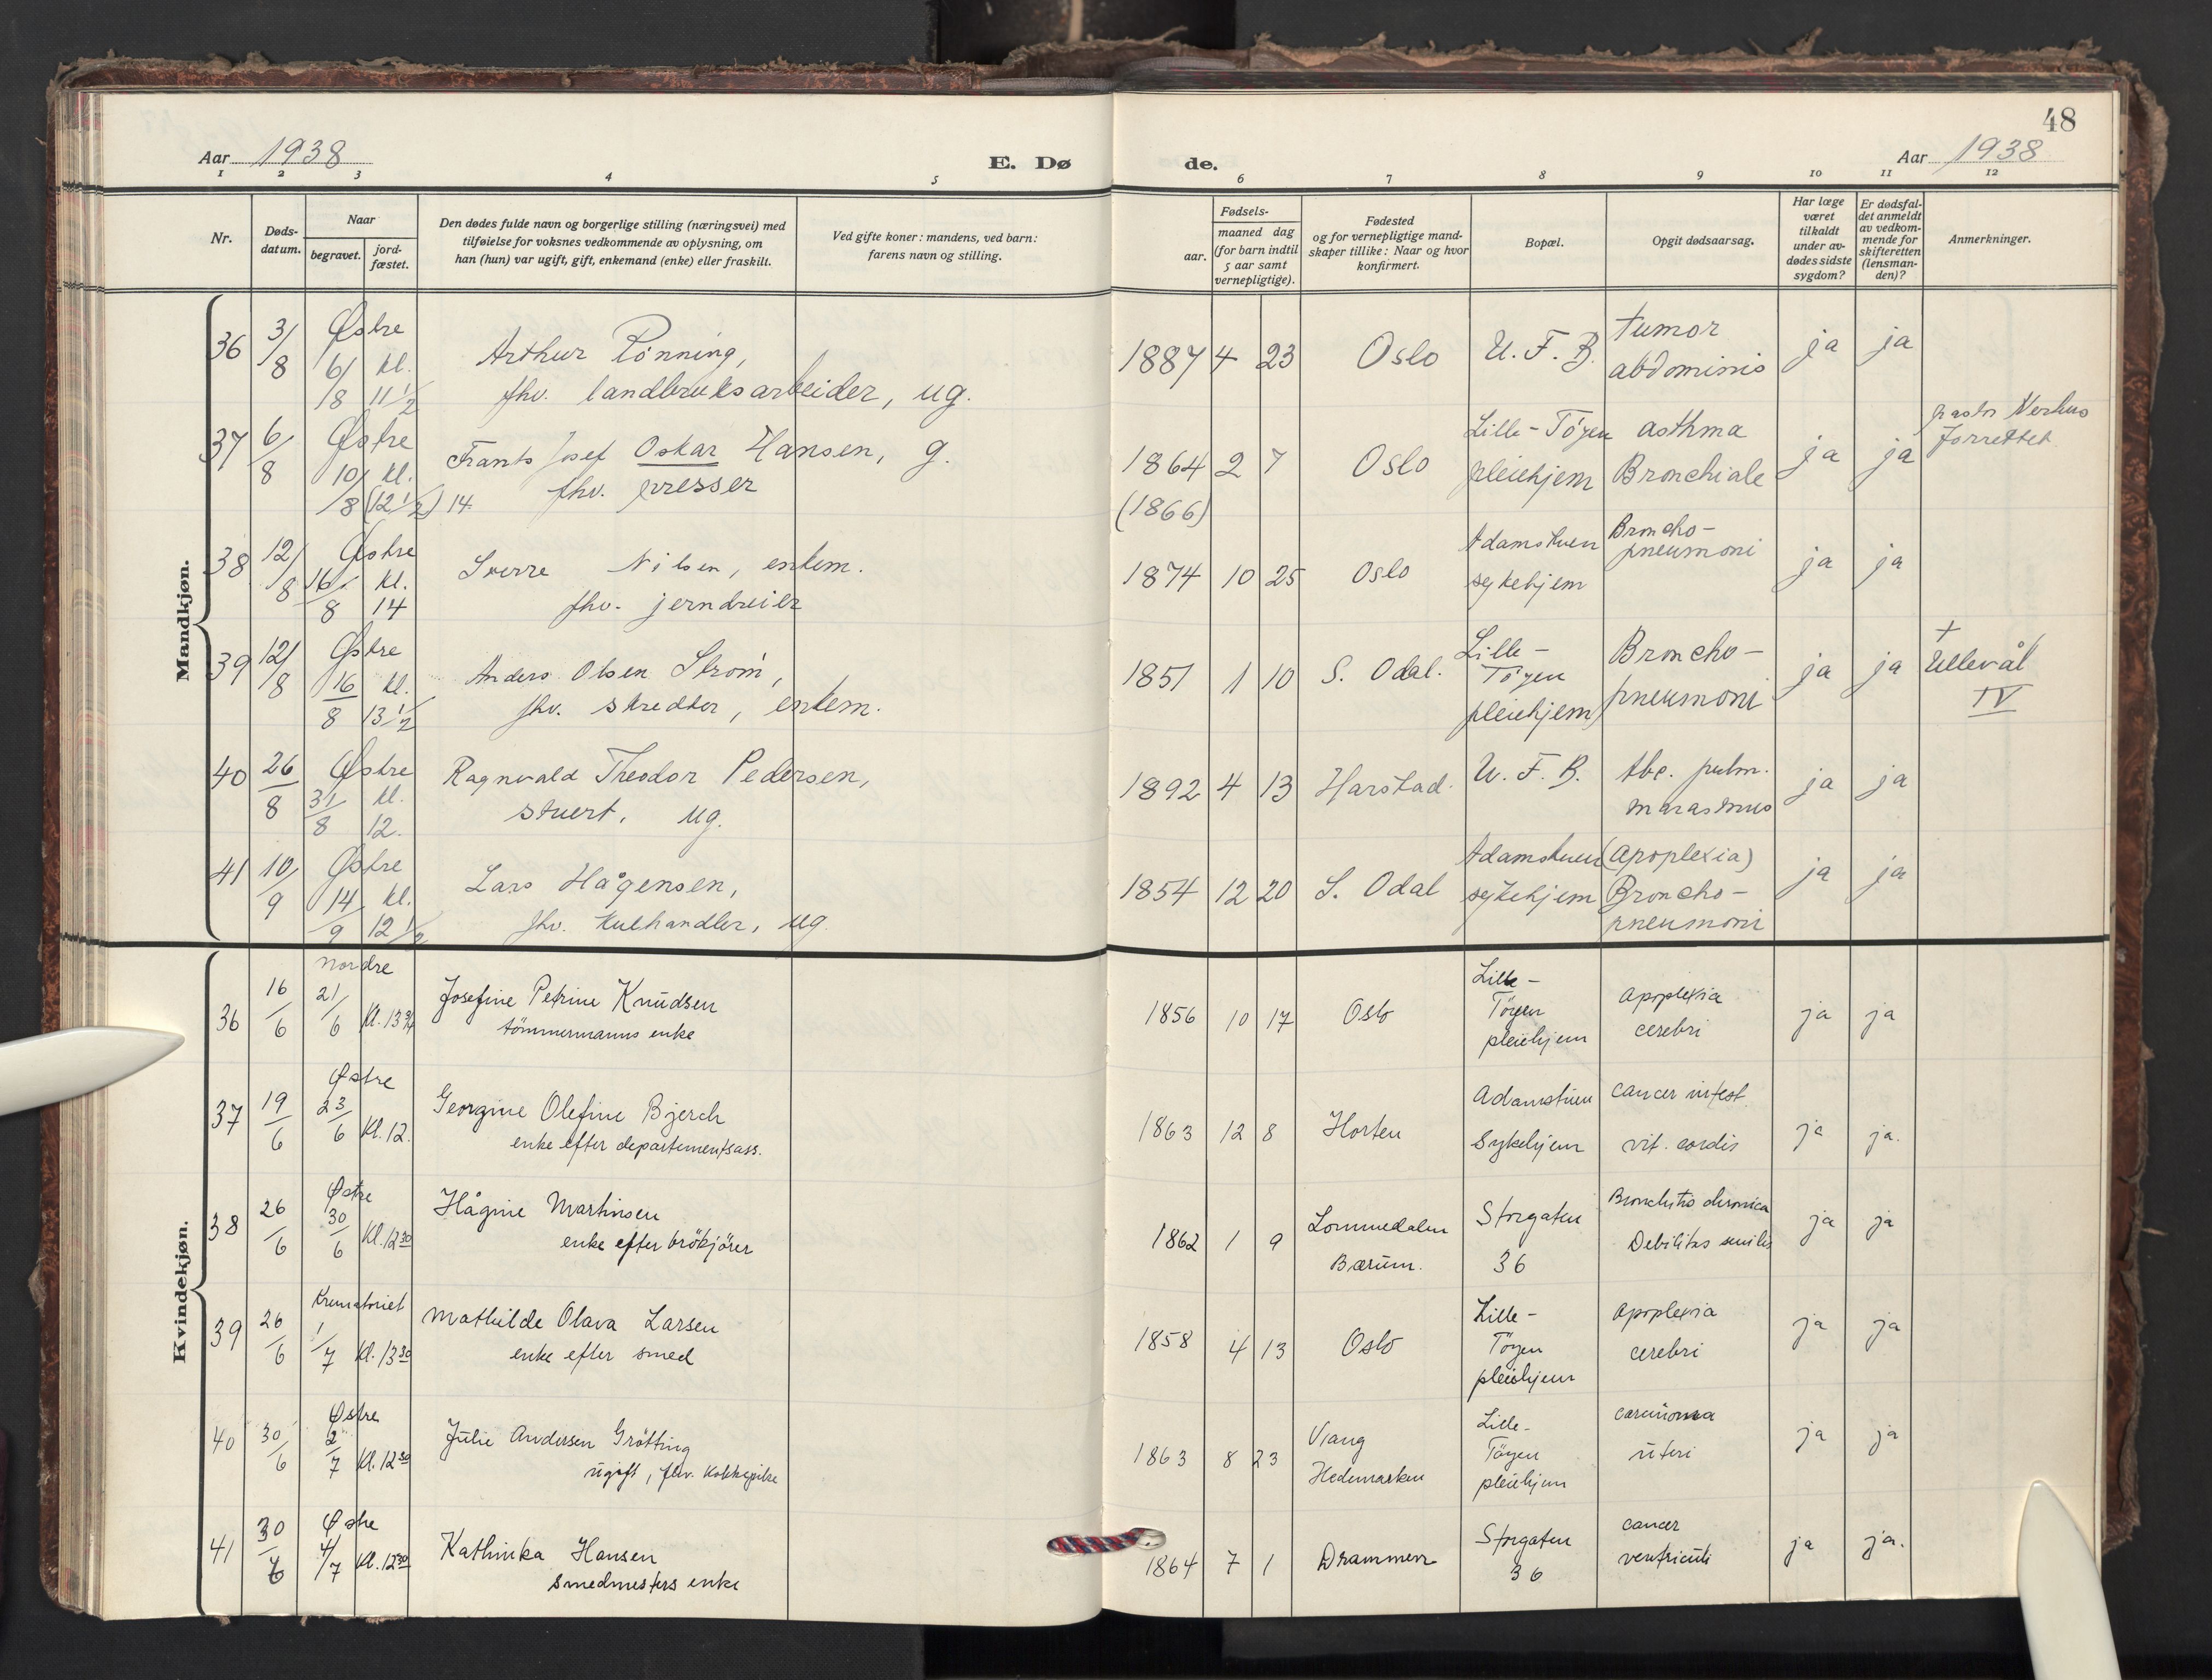 48
Aar 1938
E. Dø de.
Aar 1938
1 2 3 4 5 6 7 8 9 10 11 12
Nr.
Døds-
datum.
Naar
begravet.
jord-
fæstet.
Den dødes fulde navn og borgerlige stilling (næringsvei) med
tilføielse for voksnes vedkommende av oplysning, om
han (hun) var ugift, gift, enkemand (enke) eller fraskilt.
Ved gifte koner: mandens, ved barn:
farens navn og stilling.
Fødsels-
aar.
maaned dag
(for barn indtil
5 aar samt
vernepligtige).
Fødested
og for vernepligtige mand-
skaper tillike: Naar og hvor
konfirmert.
Bopæl.
Opgit dødsaarsag.
Har læge
været
tilkaldt
under av-
dødes sidste
sygdom?
Er dødsfal-
det anmeldt
av vedkom-
mende for
skifteretten
(lensman-
den)?
Anmerkninger.
Mandkjøn.
36 3/8 Østre 6/8 kl. 11 1/2
Arthur Rönning,
fhv. landbruksarbeider, ug.
1887 4 23 Oslo U. F. B.
tumor
abdominis
ja ja
37 6/8 Østre 10/8 kl. (12 1/2) 14
Frants Josef Oskar Hansen, g.
fhv. presser
1864 2 7
(1866)
Oslo
Lille-Töyen
pleiehjem
asthma
Bronchiale
ja ja
pastor
forrettet
38 12/8 Østre 16/8 kl. 14
Sverre Nilsen, enkem.
fhv. jerndreier
1874 10 25 Oslo
Adamstuen
sykehjem
Broncho-
pneumoni
ja ja
39 12/8 Østre 16/8 kl. 13 1/2
Anders Olsen Ström,
fhv. skredder, enkem.
1851 1 10 S. Odal.
Lille-
Töyen
pleiehjem
Broncho-
pneumoni
ja ja
+
Ullevål
IV
40 26/8 Østre 31/8 kl. 12.
Ragnvald Theodor Pedersen,
stuert, ug.
1892 4 13 Harstad. U. F. B.
tbc. pulm.
marasmus
ja ja
41 10/9 Østre 14/9 kl. 12 1/2
Lars Hågensen,
fhv. kulhandler, ug.
1854 12 20 S. Odal
Adamstuen
sykehjem
(apoplexia)
Broncho-
pneumoni
ja ja
Kvindekjøn.
36 16/6 Nordre 21/6 Kl. 13 3/4
Josefine Petrine Knudsen
tömmermanns enke
1856 10 17 Oslo
Lille-
Töyen
pleiehjem
Apoplexia
cerebri
ja ja
37 19/6 Østre 23/6 Kl. 12.
Georgine Olefine Bjerch
enke efter departementsass.
1863 12 8 Horten
Adamstuen
Sykehjem
Cancer intest.
vit. cordis
ja ja.
38 26/6 Østre 30/6 Kl. 12 30
Hågine Martinsen
enke efter brökjörer
1862 1 9
Lommedalen
Bærum.
Storgaten
36
Bronchitis chronica
Debilitas senilis
ja ja
39 26/6 Krematoriet 1/7 Kl. 13 30
Mathilde Olava Larsen
enke efter smed
1858 4 13 Oslo
Lille-
Töyen
pleiehjem
Apoplexia
cerebri
ja ja
40 30/6 Østre 2/7 Kl. 12 30
Julie Andersen Grötting
ugift, fhv. kokkepike
1863 8 23
Vang
Hedemarken
Lille-
Töyen
pleiehjem
Carcinoma
uteri
ja ja
41 30/6 Østre 4/7 Kl. 12 30
Kathinka Hansen
Smedmesters enke
1864 7 1 Drammen
Storgaten
36
Cancer
ventriculi
ja ja.